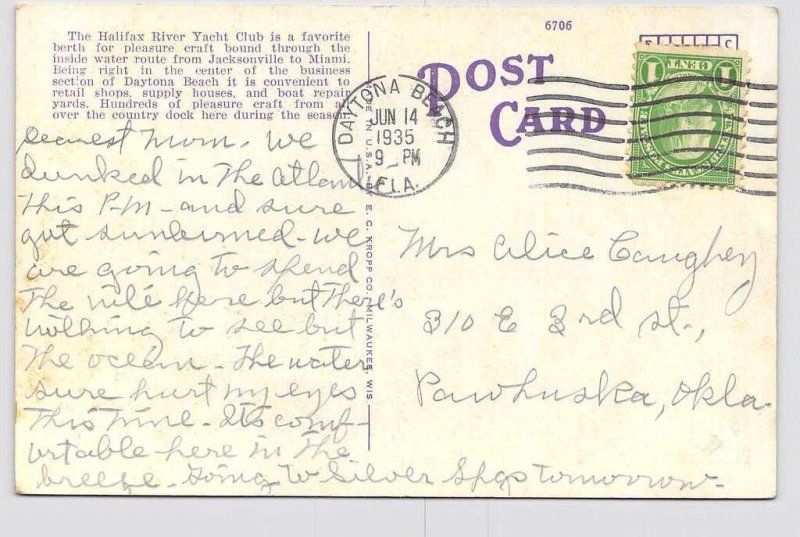 The Halifax River Yacht Club is a favorite
berth for pleasure craft bound through the
inside water route from Jacksonville to Miami.
Being right in the center of the business
section of Daytona Beach it is convenient to
retail shops, supply houses, and boat repair
yards. Hundreds of pleasure craft from a
over the country dock here during the season
Dearest Mom. We
dunked in the Atlan
this P.M - and sure
got sunburned. We
are going to spend
the nite here but there's
nothing to see but
the ocean. The water
sure hurt my eyes
this time. Its comf-
ortable here in the
breeze. Going to Silver Spgs tomorrow.
MADE IN U.S.A. BY E. C. KROPP CO., MILWAUKEE, WIS
6706
POST
CARD
DAYTONA BEACH
JUN 14
1935
9 PM
FLA.
1 CENT 1
Mrs Alice Caughey
310 E 3rd st.,
Pawhuska, Okla.